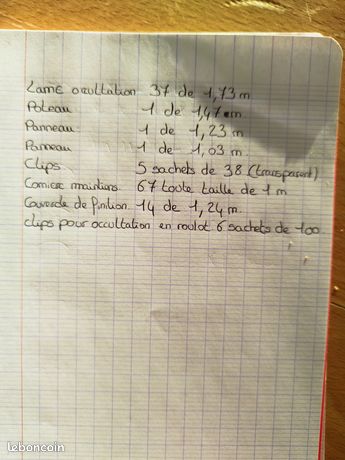 Lame occultation 37 de 1,73 m
Poteau 1 de 1,47 m
Panneau 1 de 1,23 m
Panneau 1 de 1,03 m.
Clips 5 sachets de 38 (transparent)
Corniere maintiens 67 toute taille de 1 m
Couvercle de finition 14 de 1,24 m.
clips pour occultation en roulot 6 sachets de 100
leboncoin